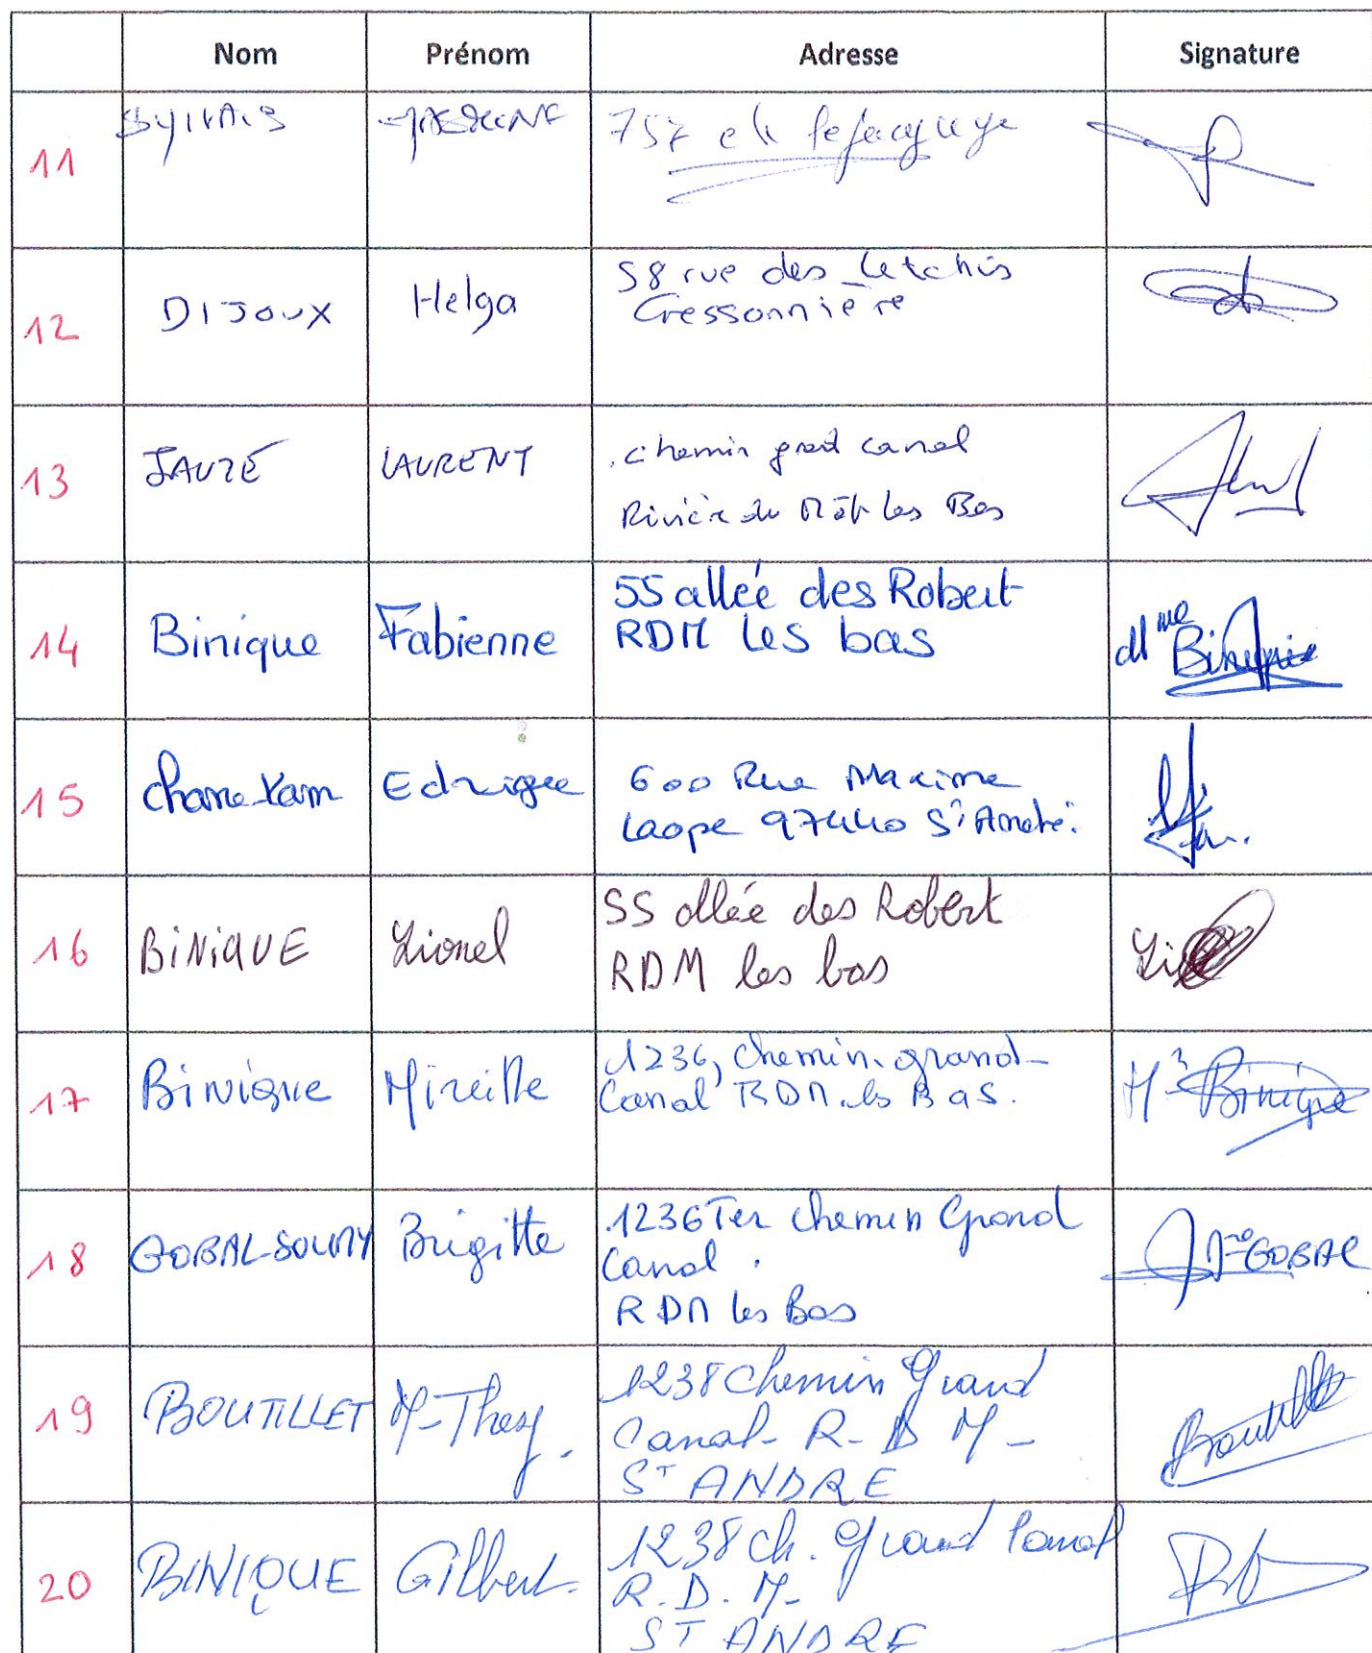 Nom Prénom Adresse Signature
11 757 ch
12 DIJOUX Helga 58 rue des Letchis
Cressonnière
13 JAUZE LAURENT chemin grand canal
Rivière du Mât les Bas
14 Binique Fabienne 55 allée des Robert
RDM les bas
Mme Binique
15 Chane-Kam 600 Rue Maxime
Laope 97440 St André.
16 BINIQUE Lionel 55 allée des Robert
RDM les bas
17 Binique Mireille 1236, chemin grand-
Canal RDM les Bas.
Binique
18 GOBAL-SOUMY Brigitte 1236 Ter chemin Grand
Canal.
RDM les Bas
GOBAL
19 BOUTILLET M-Thesy. 1238 chemin Grand
Canal - R-D M -
ST ANDRE
20 BINIQUE Gilbert. 1238 ch. Grand Canal
R.D.M-
ST ANDRE